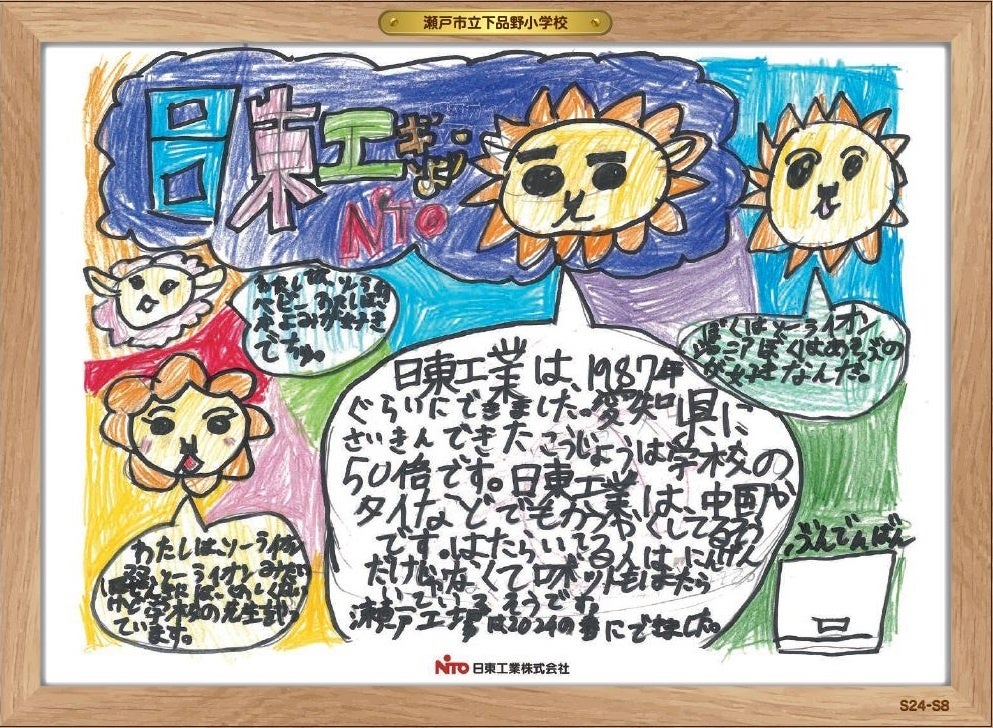 瀬戸市立下品野小学校
日東工ぎょう
NiTO
わたしは、ソーラ
ベビー、わたしは、
が好き
でちゅ。
ぼくはソーライオン
ジュニアぼくはあそぶの
が好きなんだ。
日東工業は、1987年
ぐらいにできました。愛知県に
さいきんできたこうじょうは学校の
50倍です。日東工業は、中国や
タイなどでもかつやくしてるそう
です。はたらいてる人は、にんげん
だけじゃなくてロボットもはたら
いているそうです。
瀬戸工場は2024の春にできました。
わたしは、ソーラ
ソーライオンみたい
けど学校の先生
ています。
ぶんでんばん
NiTO 日東工業株式会社
S24-S8